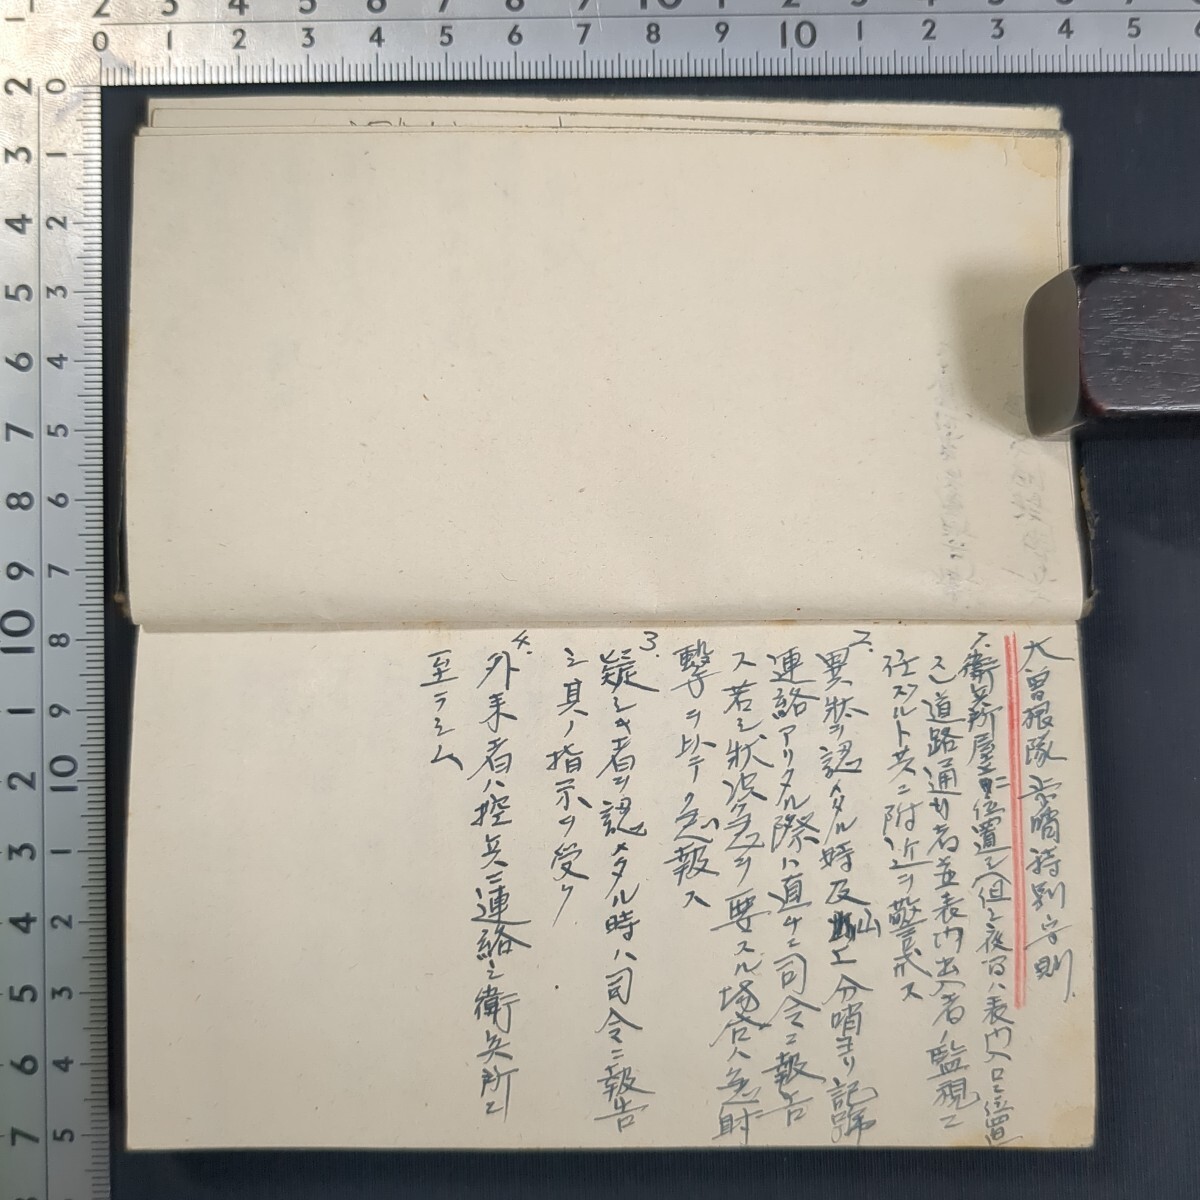 大曽根隊歩哨特別守則
1. 衛兵所屋上ニ位置シ(但シ夜間ハ表門入口ニ位置
シ)道路通行者並表門出入者ノ監視ニ
任ズルト共ニ附近ヲ警戒ス
2. 異状ヲ認メタル時及山上分哨ヨリ記號
連絡アリタル際ハ直チニ司令ニ報告
ス若シ状況急ヲ要スル場合ハ急射
撃ヲ以テ急報ス
3. 疑シキ者ヲ認メタル時ハ司令ニ報告
シ其ノ指示ヲ受ク
4. 外来者ハ控兵ニ連絡シ衛兵所ニ
至ラシム